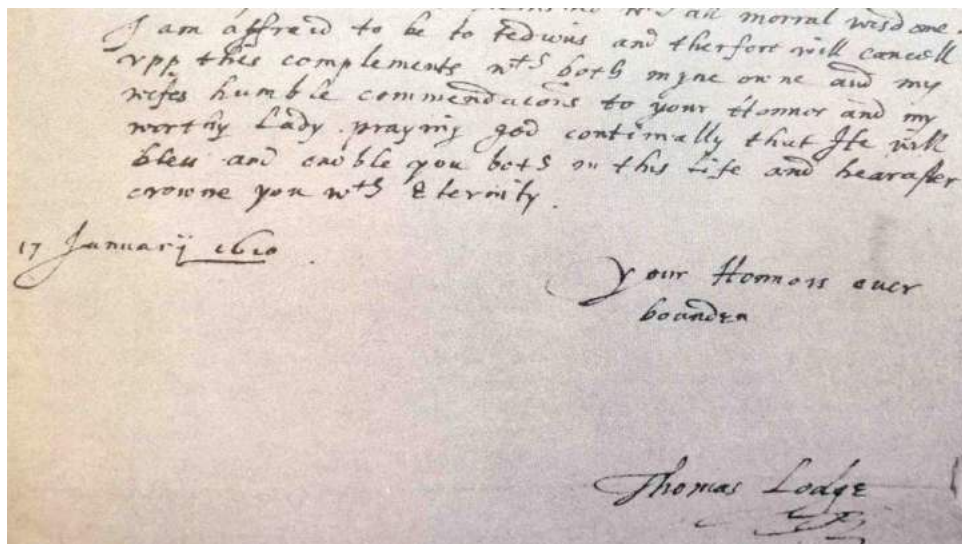 all morral wisdome.
I am affraid to be to tedious and therfore will cancell
vpp this complements wth both myne owne and my
wifes humble commendacons to your Honnor and my
worthy Lady. praying god continually that He will
bless and enoble you both in this Life and hearafter
crowne you wth Eternity.
17 January 1610.
Your Honnors euer
bounden
Thomas Lodge